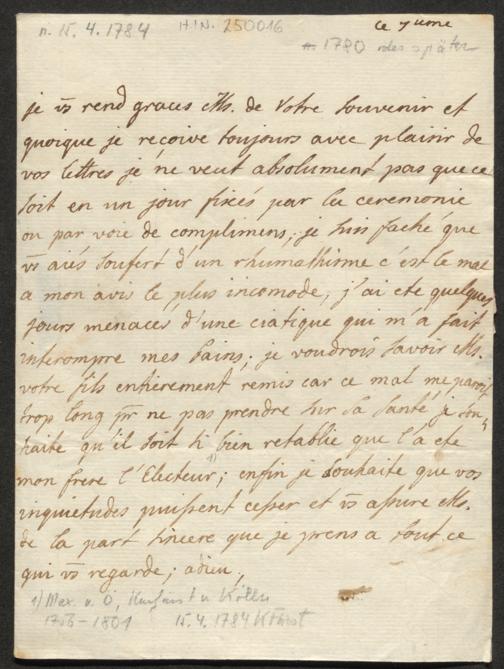 n. 15. 4. 1784 H.I.N. 250016 ce 7 ume
1780 oder später
je vs rend graces Mr. de Votre souvenir et
quoique je reçoive toujours avec plaisir de
vos lettres je ne veut absolument pas que ce
soit en un jour fixés par la ceremonie
ou par voie de complimens, je suis faché que
vs aiés soufert d'un rhumathisme c'est le mal
a mon avis le plus incomode, j'ai eté quelques
jours menacés d'une ciatique qui m'a fait
interompre mes bains; je voudrois savoir Mr.
votre fils entièrement remis car ce mal me paroit
trop long pr ne pas prendre sur sa santé je sou-
haite qu'il soit si bien retablie que l'a eté
mon frere l'Electeur 1); enfin je souhaite que vos
inquietudes puissent cesser et vs assure Mr.
de la part sincere que je prens a tout ce
qui vs regarde; adieu.
1) Max. v. Ö, Kurfürst v. Köln
1756–1801 15.4.1784 Kfürst